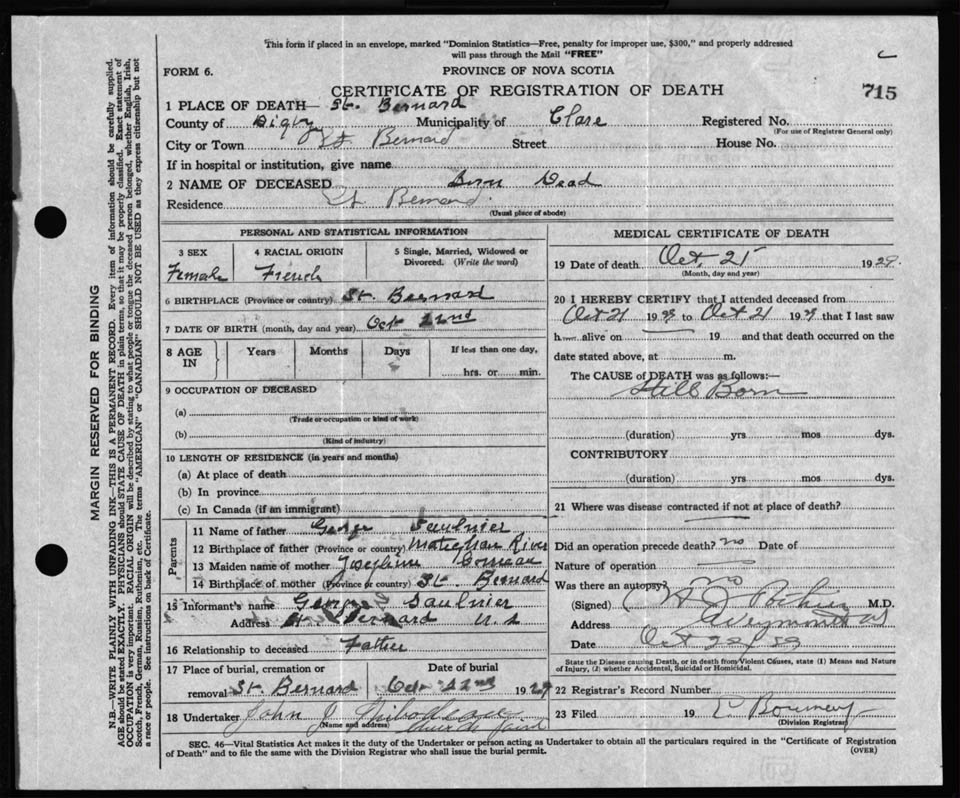 This form if placed in an envelope, marked "Dominion Statistics—Free, penalty for improper use, $300," and properly addressed
will pass through the Mail "FREE"
FORM 6. PROVINCE OF NOVA SCOTIA
CERTIFICATE OF REGISTRATION OF DEATH 715
1 PLACE OF DEATH— St. Bernard
County of Digby Municipality of Clare Registered No.
(For use of Registrar General only)
City or Town St Bernard Street House No.
If in hospital or institution, give name
2 NAME OF DECEASED Born Dead
Residence St Bernard
(Usual place of abode)
PERSONAL AND STATISTICAL INFORMATION
3 SEX 4 RACIAL ORIGIN 5 Single, Married, Widowed or
Divorced. (Write the word)
Female French
6 BIRTHPLACE (Province or country) St. Bernard
7 DATE OF BIRTH (month, day and year) Oct 22nd
8 AGE IN Years Months Days If less than one day,
hrs. or min.
9 OCCUPATION OF DECEASED
(a)
(Trade or occupation or kind of work)
(b)
(Kind of industry)
10 LENGTH OF RESIDENCE (in years and months)
(a) At place of death
(b) In province
(c) In Canada (if an immigrant)
Parents
11 Name of father George Saulnier
12 Birthplace of father (Province or country) Mateghan River
13 Maiden name of mother Josephine Comeau
14 Birthplace of mother (Province or country) St. Bernard
15 Informant's name George Saulnier
Address St Bernard N.S
16 Relationship to deceased Father
17 Place of burial, cremation or Date of burial
removal St. Bernard Oct 22nd 1929
18 Undertaker John J Thibodeau
(Name and address)
MEDICAL CERTIFICATE OF DEATH
19 Date of death Oct 21 1929.
(Month, day and year)
20 I HEREBY CERTIFY that I attended deceased from
Oct 21 1929 to Oct 21 1929 that I last saw
h alive on 19 and that death occurred on the
date stated above, at m.
The CAUSE of DEATH was as follows:—
Still Born
(duration) yrs mos dys.
CONTRIBUTORY
(duration) yrs mos dys.
21 Where was disease contracted if not at place of death?
Did an operation precede death? no Date of
Nature of operation
Was there an autopsy? no
(Signed) M.D.
Address Weymouth NS
Date Oct 22/29
State the Disease causing Death, or in death from Violent Causes, state (1) Means and Nature
of Injury, (2) whether Accidental, Suicidal or Homicidal.
22 Registrar's Record Number
23 Filed 19
(Division Registrar)
SEC. 46—Vital Statistics Act makes it the duty of the Undertaker or person acting as Undertaker to obtain all the particulars required in the "Certificate of Registration
of Death" and to file the same with the Division Registrar who shall issue the burial permit. (OVER)
MARGIN RESERVED FOR BINDING
N.B—WRITE PLAINLY WITH UNFADING INK—THIS IS A PERMANENT RECORD. Every item of information should be carefully supplied.
AGE should be stated EXACTLY. PHYSICIANS should STATE CAUSE OF DEATH in plain terms, so that it may be properly classified. Exact statement of
OCCUPATION is very important. RACIAL ORIGIN will be described by stating to what people or tongue the deceased person belonged, whether English, Irish,
Scotch, French, German, Russian, Ruthenian, etc. The terms "AMERICAN" or "CANADIAN" SHOULD NOT BE USED as they express citizenship but not
a race or people. See instructions on back of Certificate.